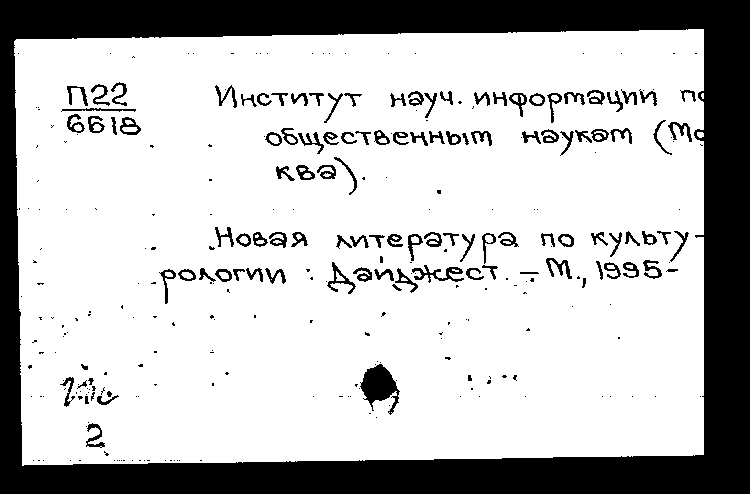 П22
6618
Институт науч. информации по
общественным наукам (Мо
ква).
Новая литература по культу-
рологии : Дайджест. – М., 1995-
2